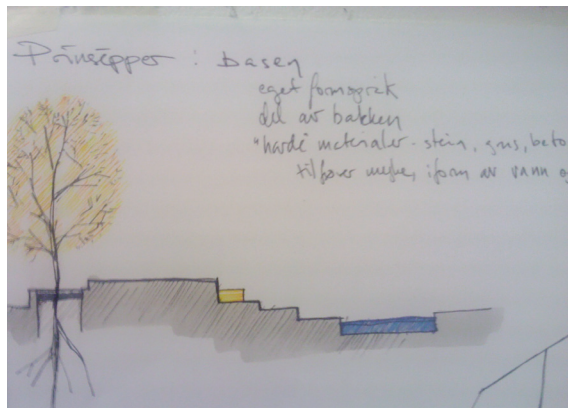 Prinsipper : basen
eget formspråk
del av bakken
"harde" materialer - stein, grus, beto
tilfører mykhet, i form av vann og